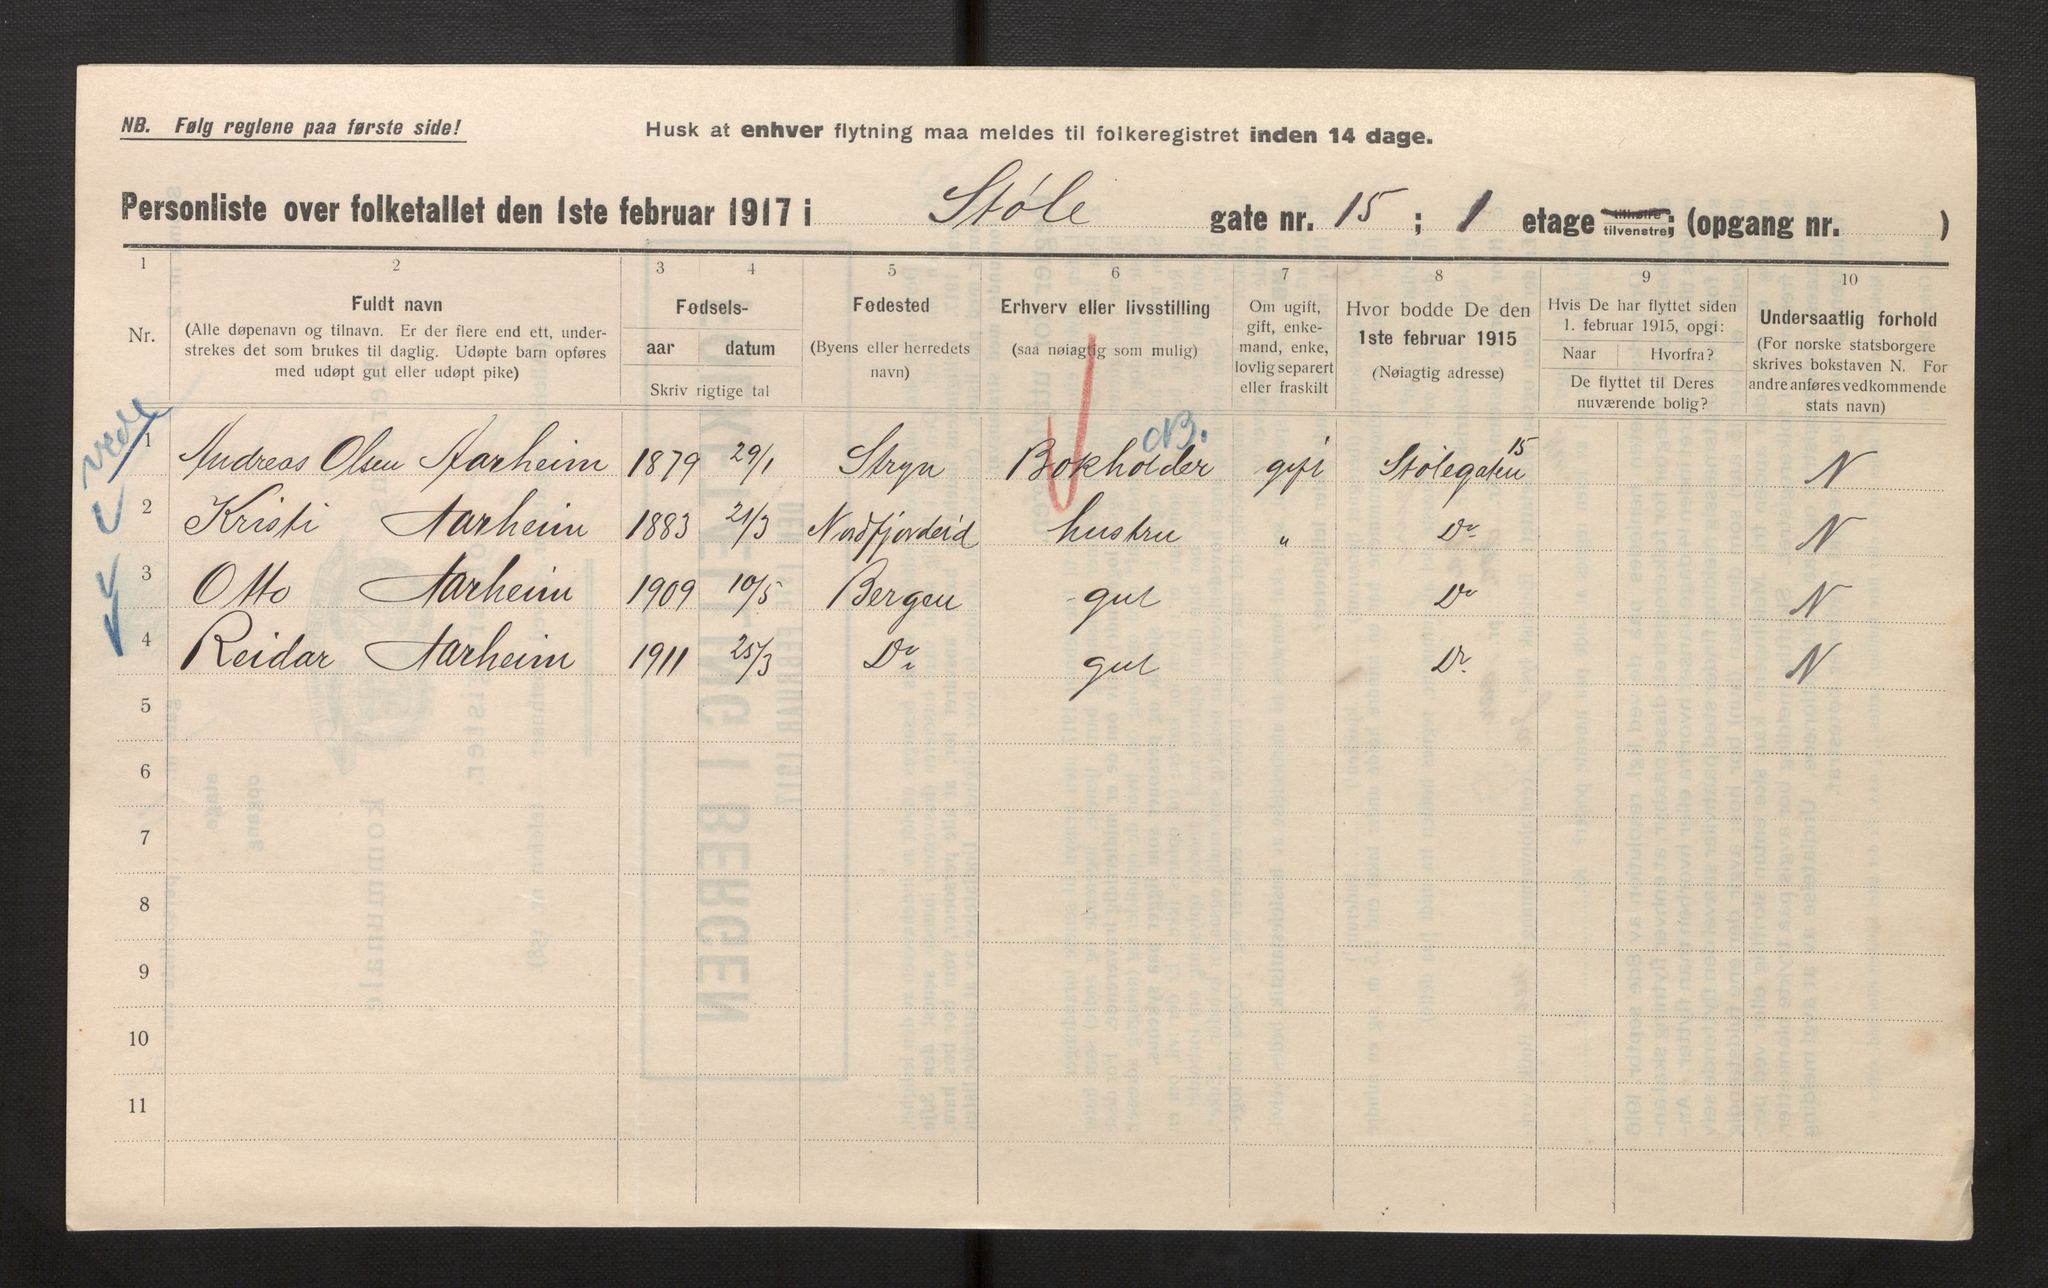 NB. Følg reglene paa første side!
Husk at enhver flytning maa meldes til folkeregistret inden 14 dage.
Personliste over folketallet den 1ste februar 1917 i Støle gate nr. 15 ; 1 etage tilhøire tilvenstre; (opgang nr. )
1 2 3 4 5 6 7 8 9 10
Nr.
Fuldt navn
(Alle døpenavn og tilnavn. Er der flere end ett, under-
strekes det som brukes til daglig. Udøpte barn opføres
med udøpt gut eller udøpt pike)
Fødsels-
aar datum
Skriv rigtige tal
Fødested
(Byens eller herredets
navn)
Erhverv eller livsstilling
(saa nøiagtig som mulig)
Om ugift,
gift, enke-
mand, enke,
lovlig separert
eller fraskilt
Hvor bodde De den
1ste februar 1915
(Nøiagtig adresse)
Hvis De har flyttet siden
1. februar 1915, opgi:
Naar Hvorfra?
De flyttet til Deres
nuværende bolig?
Undersaatlig forhold
(For norske statsborgere
skrives bokstaven N. For
andre anføres vedkommende
stats navn)
NB.
1 Andreas Olsen Aarheim 1879 29/1 Stryn Bokholder gift Stølegaten 15 N
2 Kristi Aarheim 1883 21/3 Nordfjordeid hustru " Do N
3 Otto Aarheim 1909 10/5 Bergen gut Do N
4 Reidar Aarheim 1911 25/3 Do gut Do N
5
6
7
8
9
10
11